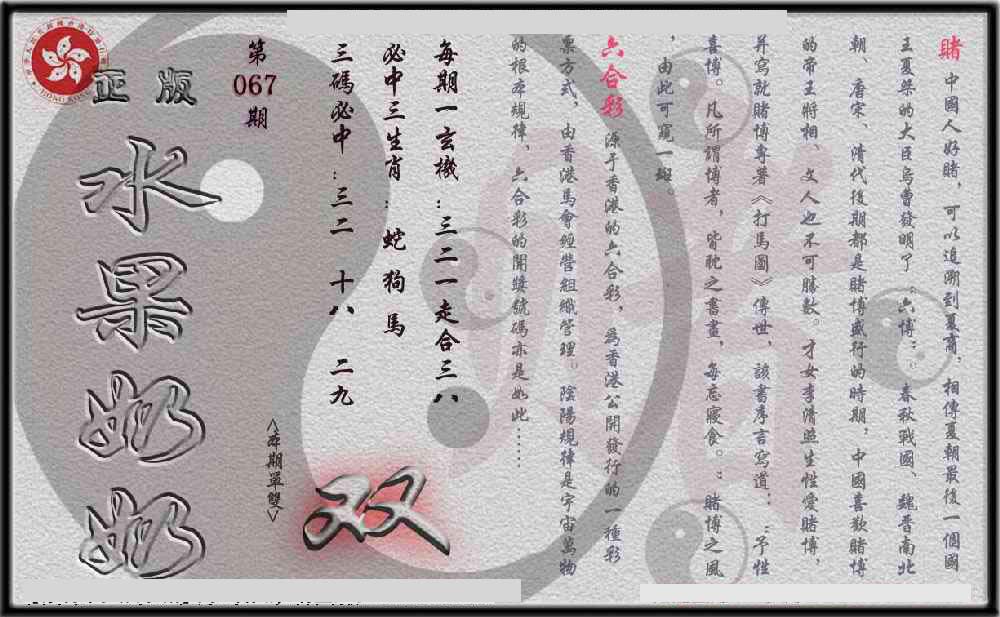 賭 中國人好賭，可以追溯到夏商。相傳夏朝最後一個國
王夏桀的大臣烏曹發明了“六博”。春秋戰國、魏晉南北
朝、唐宋、清代後期都是賭博盛行的時期，中國喜歡賭博
的帝王將相、文人也不可勝數。才女李清照生性愛賭博，
并寫就賭博專著《打馬圖》傳世，該書序言寫道：“予性
喜博。凡所謂博者，皆耽之晝晝，每忘寢食。”賭博之風
，由此可窺一斑。
六合彩 源于香港的六合彩，為香港公開發行的一種彩
票方式，由香港馬會經營組織管理。陰陽規律是宇宙萬物
的根本規律，六合彩的開獎號碼亦是如此……
每期一玄機：三二一走合三八
必中三生肖：蛇 狗 馬
三碼必中：三二 十八 二九
第
067
期
<本期單雙>
双
正版
水果奶奶